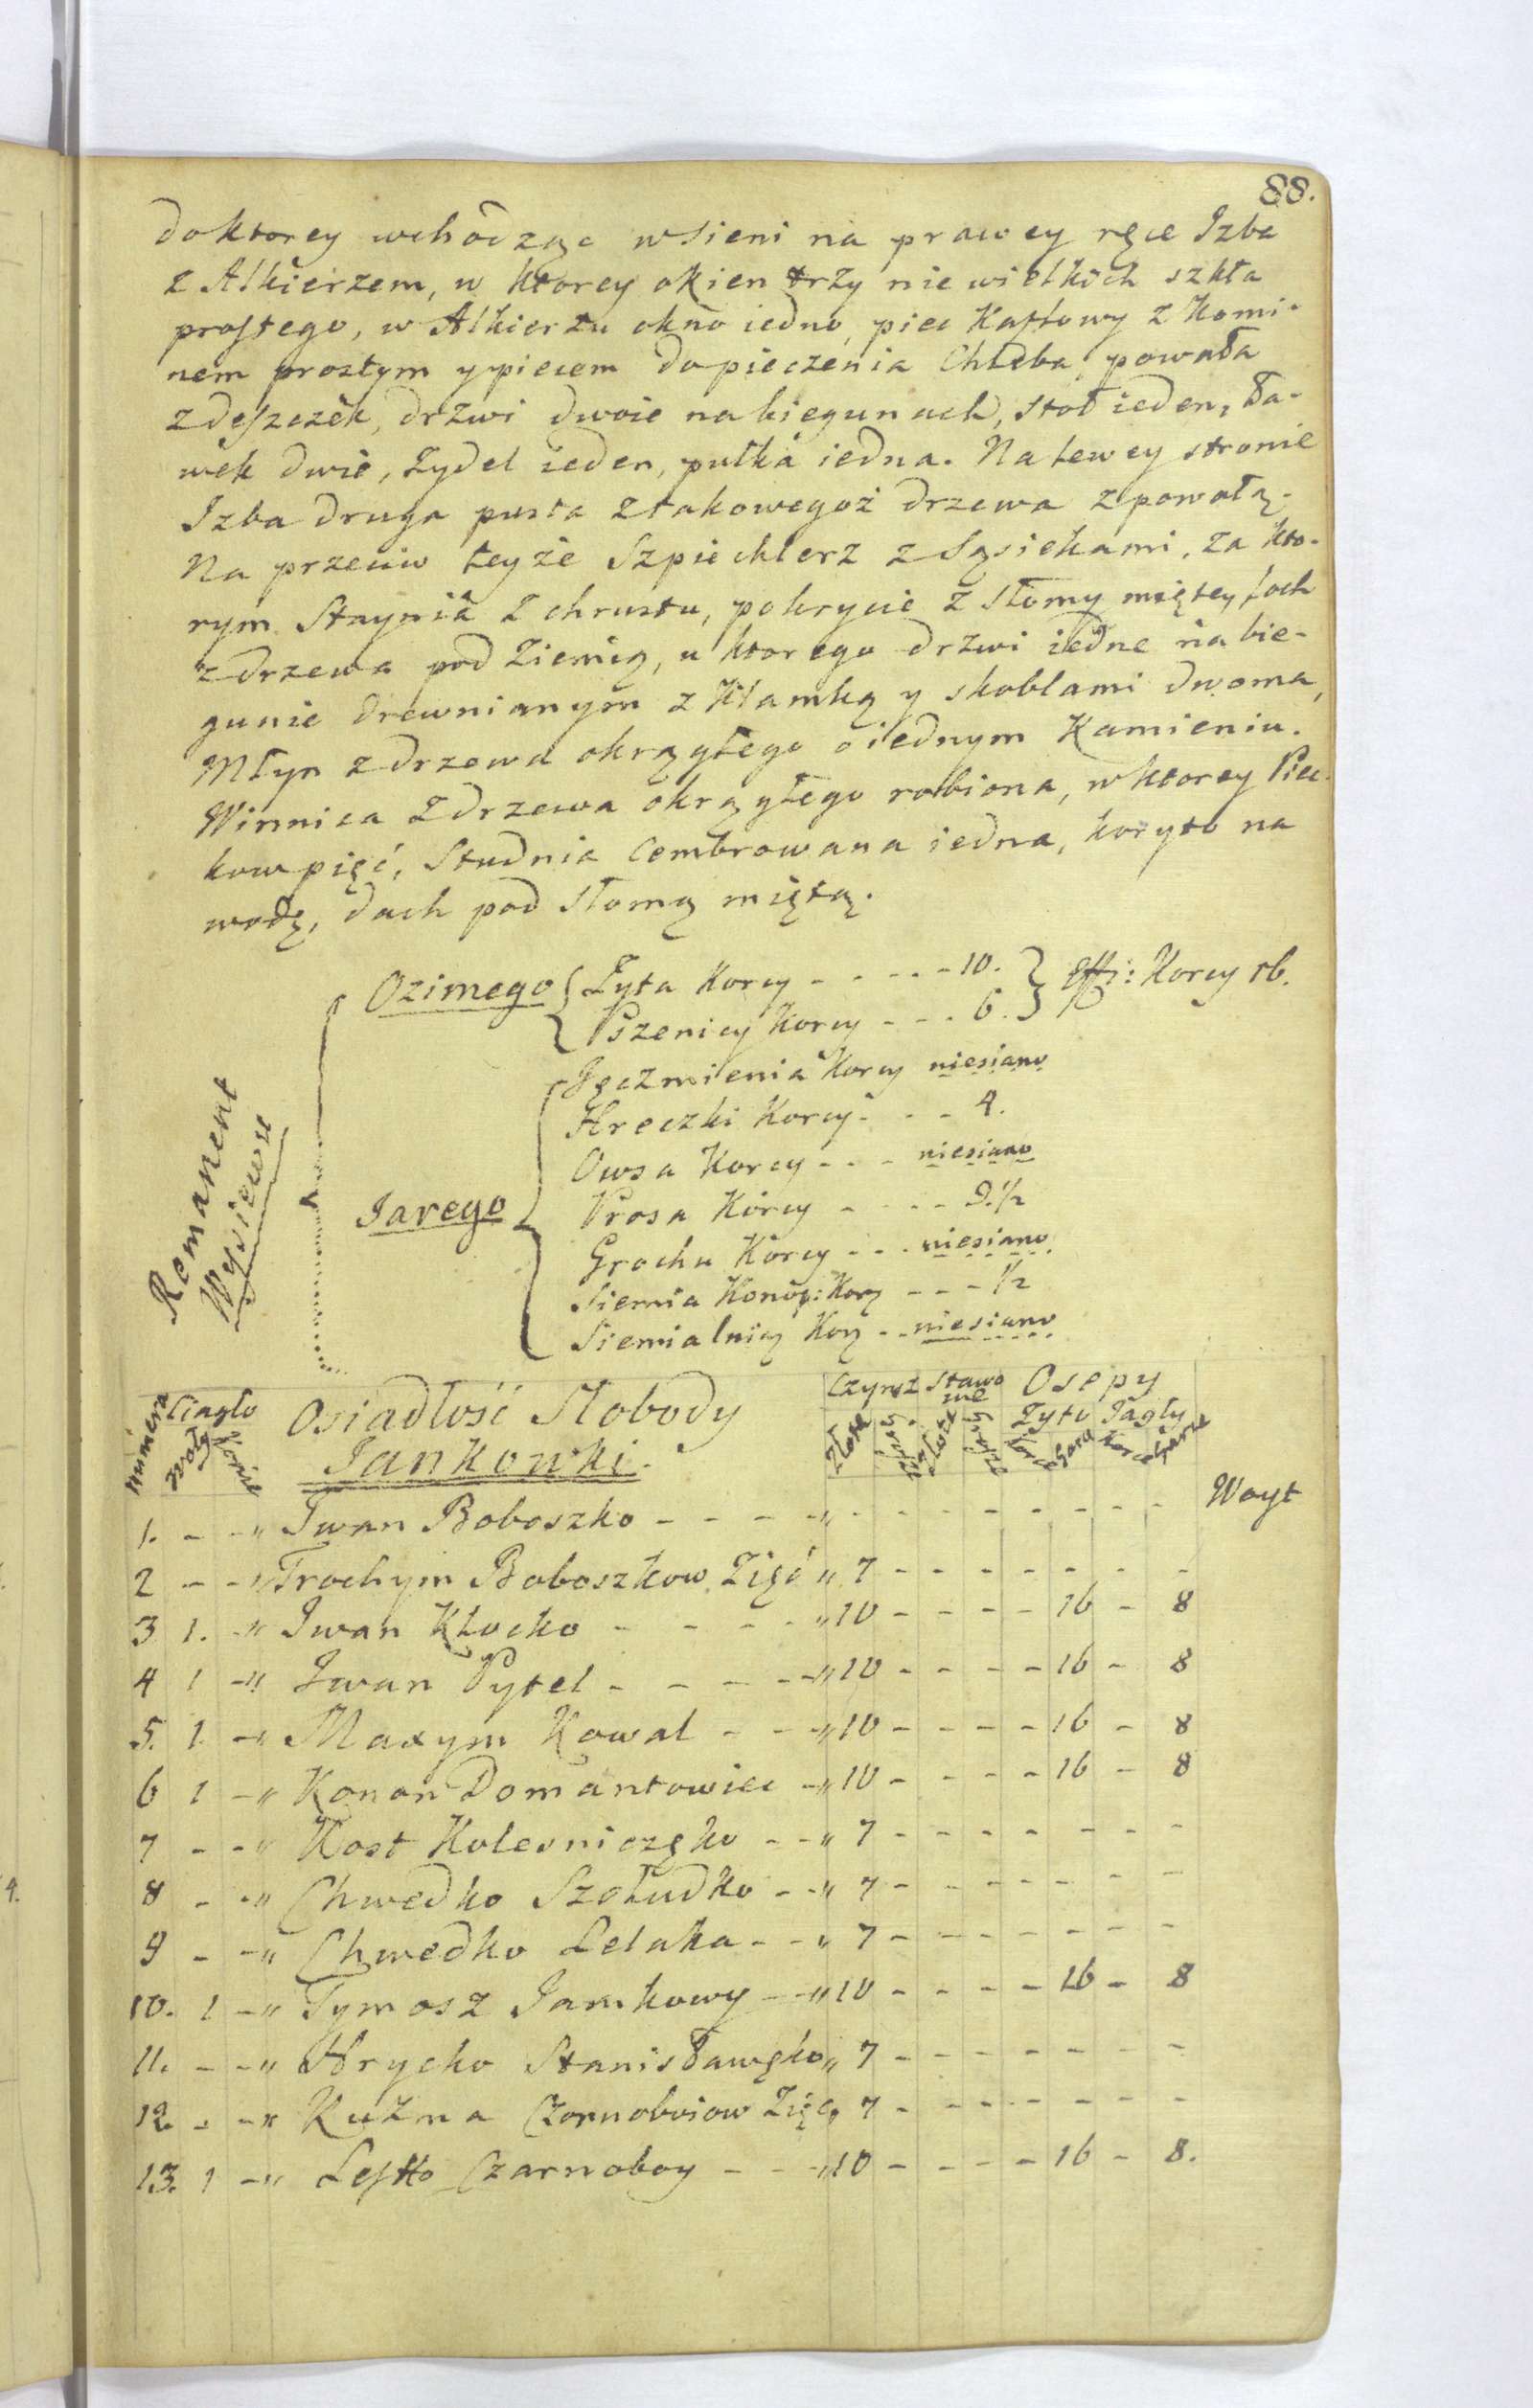 88.
doktorey wchodząc wsieni na prawey ręce Izba
z Alkierzem, w ktorey okien trzy niewielkich szkła
prostego, w Alkierzu okno iedno, piec Kaflowy z Komi-
nem prostym y piecem do pieczenia Chleba, powała
z deszczek, drzwi dwoie na biegunach, stoł ieden, ła-
wek dwie, Zydel ieden, pułka iedna. Na lewey stronie
Izba druga pusta z takowegoż drzewa z powałą.
Na przeciw teyże Szpichlerz z Sąsiekami, za kto-
rym Staynia z chrustu, pokrycie z słomy miętey, loch
z drzewa pod Ziemią, u ktorego drzwi iedne na bie-
gunie drewnianym z Klamką y skoblami dwoma,
Młyn z drzewa okrągłego o iednym Kamieniu.
Winnica z drzewa okrągłego robiona, w ktorey Piec-
kow pięć, Studnia Cembrowana iedna, koryto na
wodę, dach pod słomą miętą.
Remanent
Wysiewu
Ozimego
Żyta Korcy - - - - - 10.
Pszenicy Korcy - - - 6.
Effi: Korcy 16.
Jarego
Jęczmienia Korcy niesiano
Hreczki Korcy - - - 4.
Owsa Korcy - - - niesiano
Prosa Korcy - - - - 2.½
Grochu Korcy - - - niesiano
Siemia Konop: Korcy - - - ½
Siemialnicy Korcy - - niesiano
Numera Ciagło Osiadłość Słobody Czynsz Stawowe Osepy
Woły Konie Jankowki. Złote Grosze Złote Grosze Zyto Jagły
Korce Garce Korce Garce
1. - - " Iwan Boboszko - - - - " - - - - - - - - Woyt
2 - - " Trochym Boboszkow Zięć " 7 - - - - - - -
3 1. - " Iwan Kłocko - - - - " 10 - - - - 16 - 8
4 1 - " Iwan Pytel - - - - " 10 - - - - 16 - 8
5. 1. - " Maxym Kowal - - - " 10 - - - - 16 - 8
6 1 - " Konon Domantowiec - " 10 - - - - 16 - 8
7 - - " Kost Kolesniczęko - - " 7 - - - - - - -
8 - - " Chwedko Szełudko - - " 7 - - - - - - -
9 - - " Chwedko Lelaka - - " 7 - - - - - - -
10. 1 - " Tymosz Jamkowy - - " 10 - - - - 16 - 8
11. - - " Hrycko Stanisławęko " 7 - - - - - - -
12. - - " Kuzma Czornoboiow Zięć " 7 - - - - - - -
13. 1 - " Lesko Czarnoboy - - - " 10 - - - - 16 - 8.